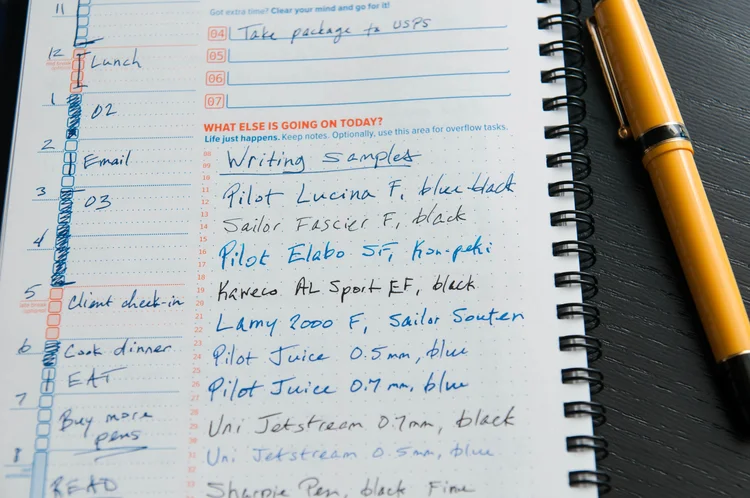 11
12
Lunch
1
02
2
Email
3
03
4
5
Client check-in
6
Cook dinner
EAT
7
Buy more
pens
8
READ
Got extra time? Clear your mind and go for it!
04 Take package to USPS
05
06
07
WHAT ELSE IS GOING ON TODAY?
Life just happens. Keep notes. Optionally, use this area for overflow tasks.
Writing samples
Pilot Lucina F, blue black
Sailor Fascier F, black
Pilot Elabo SF, Kon-peki
Kaweco AL Sport EF, black
Lamy 2000 F, Sailor Souten
Pilot Juice 0.5mm, blue
Pilot Juice 0.7mm, blue
Uni Jetstream 0.7mm, black
Uni Jetstream 0.5mm, blue
Sharpie Pen, black Fine